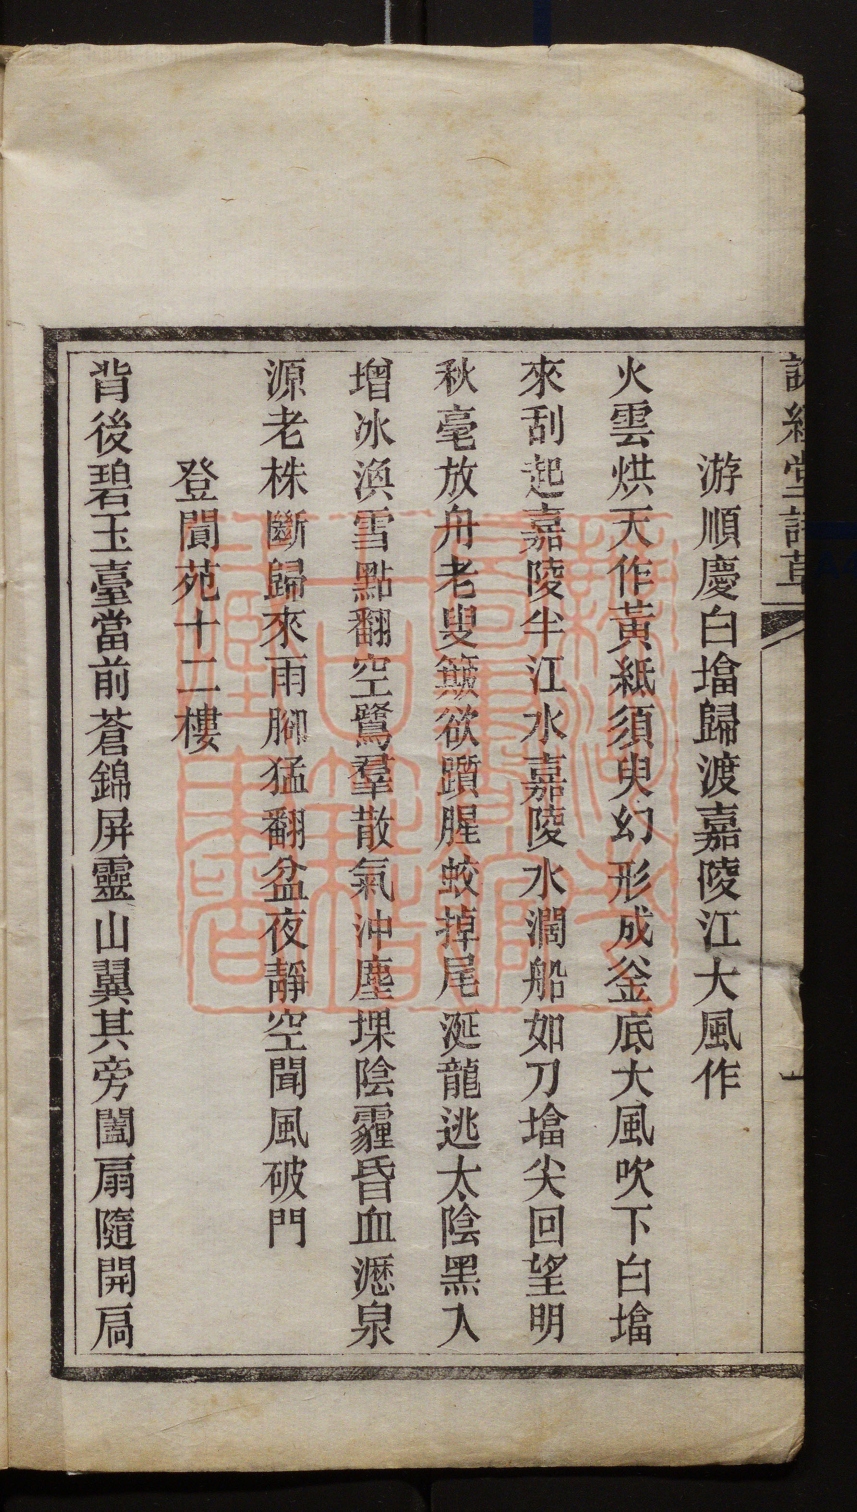 游順慶白墖歸渡嘉陵江大風作
火雲烘天作黃紙須臾幻形成釜底大風吹下白墖
來刮起嘉陵半江水嘉陵水濶船如刀墖尖回望明
秋毫放舟老叟簸欲躓腥蛟掉尾涎龍逃太陰黑入
增冰渙雪點翻空鷺羣散氣沖塵堁陰霾昏血瀝泉
源老株斷歸來雨腳猛翻盆夜靜空聞風破門
登閬苑十二樓
背後碧玉臺當前蒼錦屏靈山翼其旁闔扇隨開扃